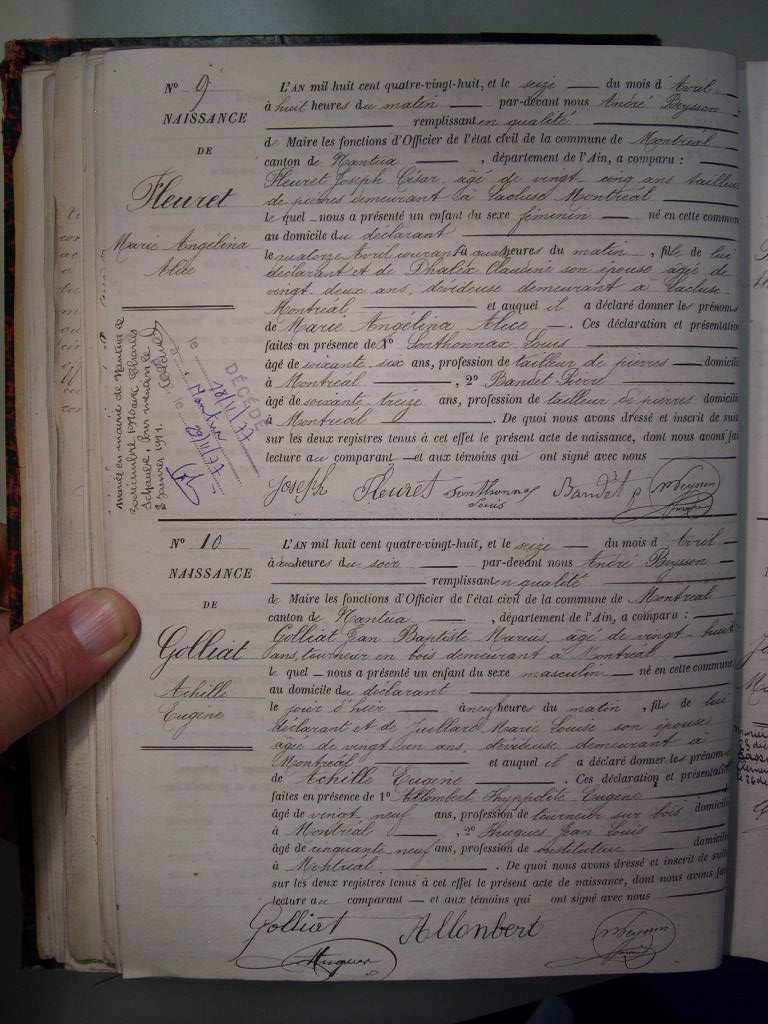 N° 9
NAISSANCE
DE
Fleuret
Marie Angélina
Alice
L'AN mil huit cent quatre-vingt-huit, et le seize du mois d'Avril
à huit heures du matin par-devant nous André Beysson
remplissant en qualité
de Maire les fonctions d'Officier de l'état civil de la commune de Montréal
canton de Nantua, département de l'Ain, a comparu :
Fleuret Joseph César, âgé de vingt cinq ans tailleur
de pierres demeurant à Lacluse Montréal
lequel nous a présenté un enfant du sexe féminin né en cette commune
au domicile du déclarant
le quatorze Avril courant à quatre heures du matin, fille de lui
déclarant et de Phalix Claudine son épouse âgée de
vingt deux ans, dévideuse demeurant à Lacluse
Montréal, et auquel il a déclaré donner les prénoms
de Marie Angélina Alice. Ces déclaration et présentation
faites en présence de 1° Sonthonnax Louis
âgé de soixante six ans, profession de tailleur de pierres domicilié
à Montréal, 2° Bandet Pierre
âgé de soixante treize ans, profession de tailleur de pierres domicilié
à Montréal. De quoi nous avons dressé et inscrit de suite
sur les deux registres tenus à cet effet le présent acte de naissance, dont nous avons fait
lecture au comparant et aux témoins qui ont signé avec nous
Joseph Fleuret Sonthonnax Louis Bandet p
Mariée en mairie de Nantua le
novembre 1910 avec Charles
2 janvier 1911.
DÉCÉDÉE
le 18/11/77
à
le 28/11/77
N° 10
NAISSANCE
DE
Golliat
Achille
Eugène
L'AN mil huit cent quatre-vingt-huit, et le seize du mois d'Avril
à heures du soir par-devant nous André Beysson
remplissant en qualité
de Maire les fonctions d'Officier de l'état civil de la commune de Montréal
canton de Nantua, département de l'Ain, a comparu :
Golliat Jean Baptiste Marius, âgé de vingt huit
ans, tourneur en bois demeurant à Montréal
lequel nous a présenté un enfant du sexe masculin né en cette commune
au domicile du déclarant
le jour d'hier à neuf heures du matin, fils de lui
déclarant et de Juillard Marie Louise son épouse
âgée de vingt un ans, dévideuse demeurant à
Montréal et auquel il a déclaré donner les prénoms
de Achille Eugène. Ces déclaration et présentation
faites en présence de 1° Allombert Hyppolite Eugène
âgé de vingt neuf ans, profession de tourneur sur bois domicilié
à Montréal, 2° Hugues Jean Louis
âgé de cinquante neuf ans, profession de instituteur domicilié
à Montréal. De quoi nous avons dressé et inscrit de suite
sur les deux registres tenus à cet effet le présent acte de naissance, dont nous avons fait
lecture au comparant et aux témoins qui ont signé avec nous
Golliat Allombert
Hugues